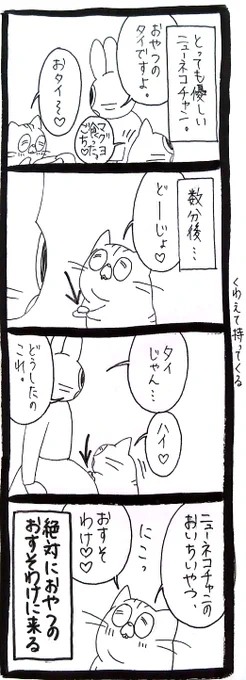 とっても優しい
ニューネコチャン。
おやつの
タイですよ。
おタイ〜♡
マグロ
食った
ごちっ♡
数分後…
どーじょ♡
くわえて持ってくる
タイ
じゃん…
ハイ♡
どうしたの
これ。
ニューネコチャンの
おいちいやつ、
にこっ
おすそ
わけ♡♡
絶対におやつの
おすそわけに来る